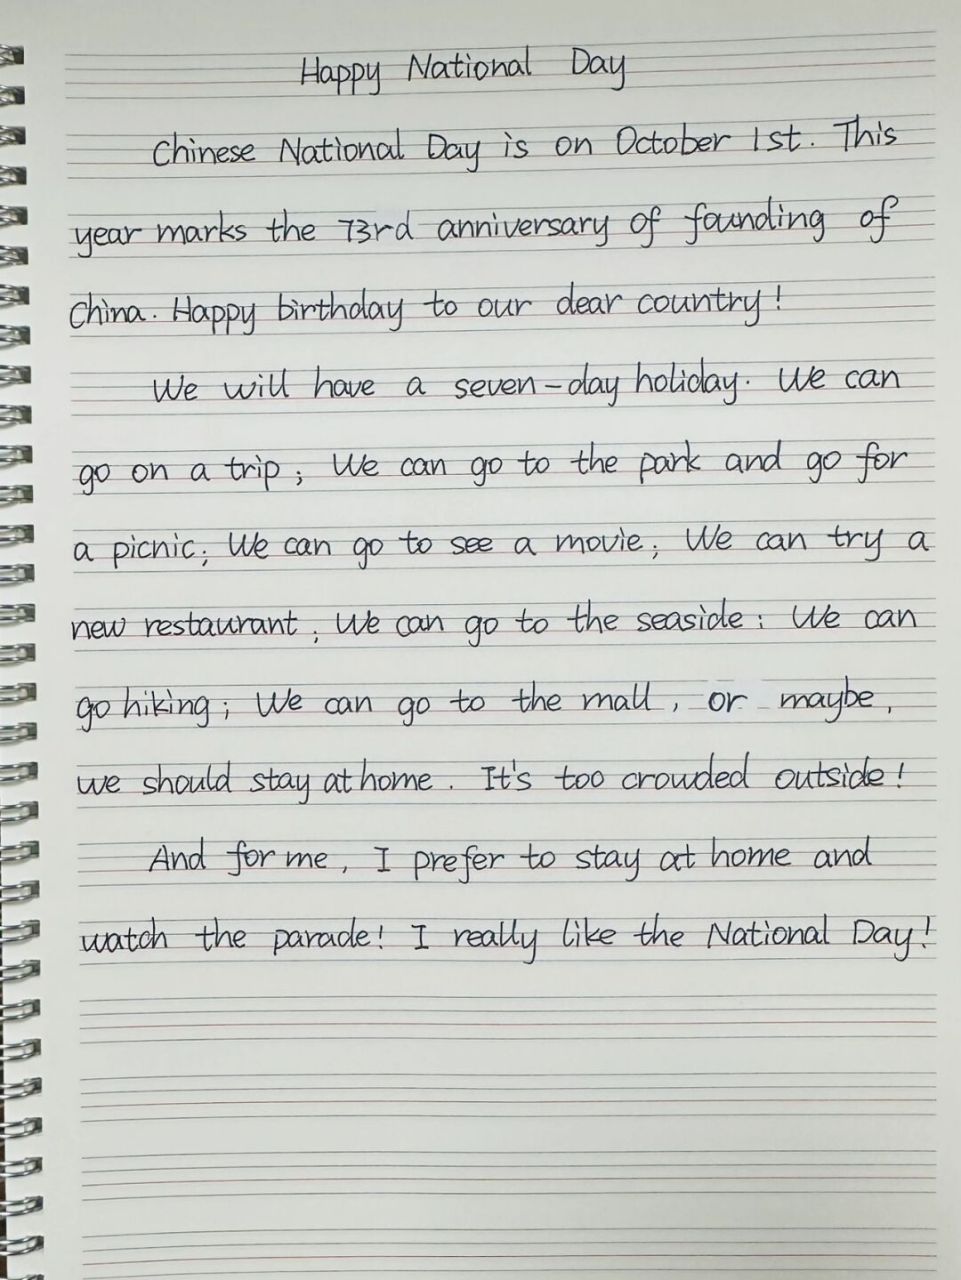 Happy National Day
Chinese National Day is on October 1st. This
year marks the 73rd anniversary of founding of
China. Happy birthday to our dear country!
We will have a seven-day holiday. We can
go on a trip; We can go to the park and go for
a picnic; We can go to see a movie; We can try a
new restaurant; We can go to the seaside; We can
go hiking; We can go to the mall, or maybe,
we should stay at home. It's too crowded outside!
And for me, I prefer to stay at home and
watch the parade! I really like the National Day!